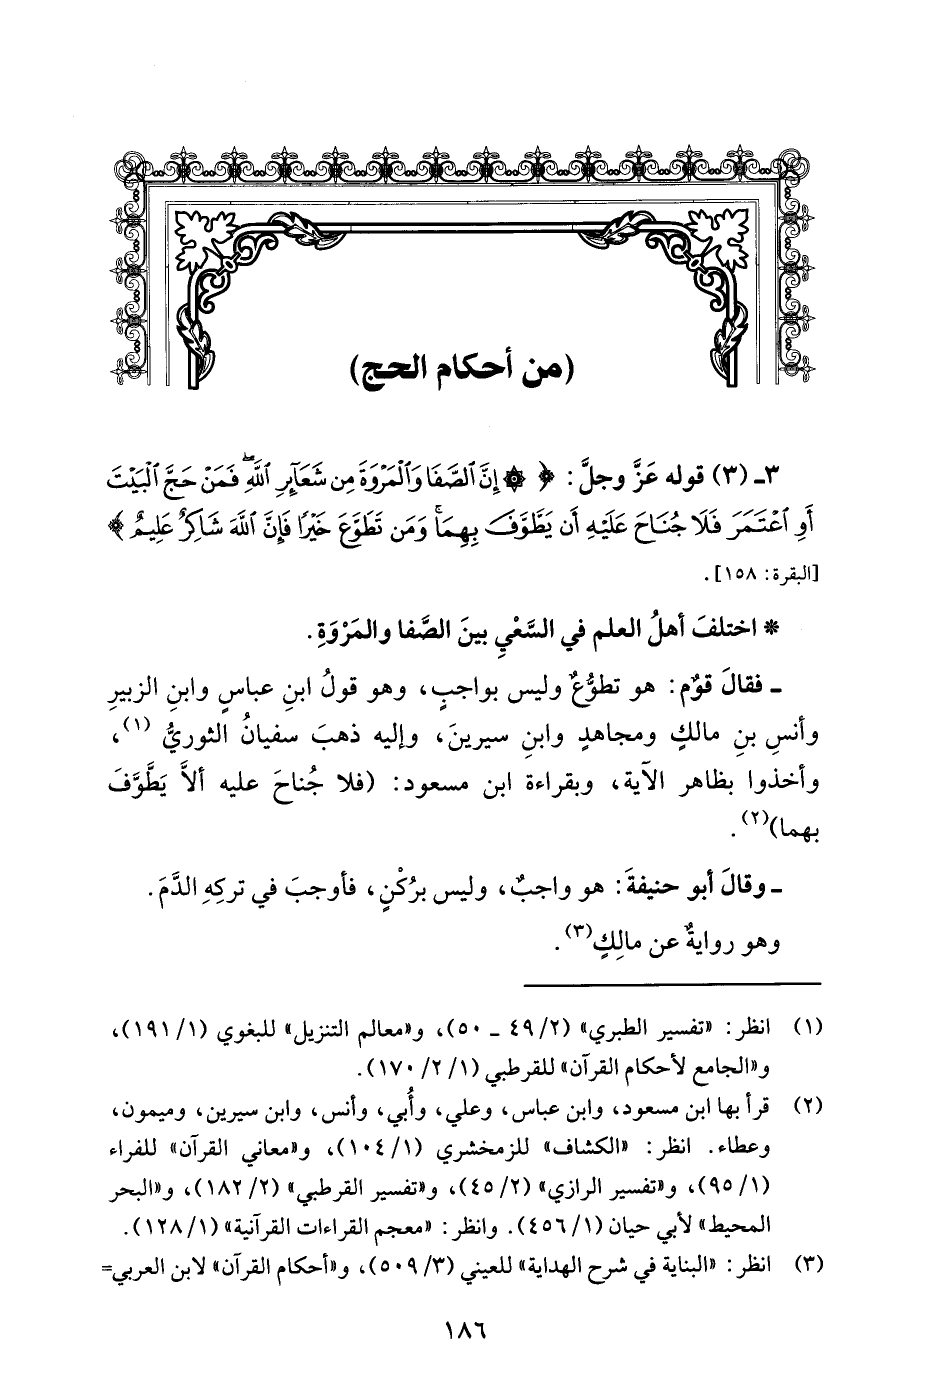 (من أحكام الحج)
٣ـ (٣) قوله عَزَّ وجلَّ: ﴿ ۞ إِنَّ ٱلصَّفَا وَٱلْمَرْوَةَ مِن شَعَآئِرِ ٱللَّهِۖ فَمَنْ حَجَّ ٱلْبَيْتَ
أَوِ ٱعْتَمَرَ فَلَا جُنَاحَ عَلَيْهِ أَن يَطَّوَّفَ بِهِمَاۚ وَمَن تَطَوَّعَ خَيْرًا فَإِنَّ ٱللَّهَ شَاكِرٌ عَلِيمٌ ﴾
[البقرة: ١٥٨].
* اختلفَ أهلُ العلم في السَّعْيِ بينَ الصَّفا والمَرْوَةِ.
ـ فقالَ قومٌ: هو تطوُّعٌ وليس بواجبٍ، وهو قولُ ابنِ عباسٍ وابنِ الزبيرِ
وأنسِ بنِ مالكٍ ومجاهدٍ وابنِ سيرينَ، وإليه ذهبَ سفيانُ الثوريُّ (١)،
وأخذوا بظاهر الآية، وبقراءة ابن مسعود: (فلا جُناحَ عليه ألاَّ يَطَّوَّفَ
بهما)(٢).
ـ وقالَ أبو حنيفةَ: هو واجبٌ، وليس برُكْنٍ، فأوجبَ في تركِهِ الدَّمَ.
وهو روايةٌ عن مالِكٍ(٣).
(١) انظر: «تفسير الطبري» (٢/ ٤٩ ـ ٥٠)، و«معالم التنزيل» للبغوي (١/ ١٩١)،
و«الجامع لأحكام القرآن» للقرطبي (١/ ٢/ ١٧٠).
(٢) قرأ بها ابن مسعود، وابن عباس، وعلي، وأُبي، وأنس، وابن سيرين، وميمون،
وعطاء. انظر: «الكشاف» للزمخشري (١/ ١٠٤)، و«معاني القرآن» للفراء
(١/ ٩٥)، و«تفسير الرازي» (٢/ ٤٥)، و«تفسير القرطبي» (٢/ ١٨٢)، و«البحر
المحيط» لأبي حيان (١/ ٤٥٦). وانظر: «معجم القراءات القرآنية» (١/ ١٢٨).
(٣) انظر: «البناية في شرح الهداية» للعيني (٣/ ٥٠٩)، و«أحكام القرآن» لابن العربي=
١٨٦